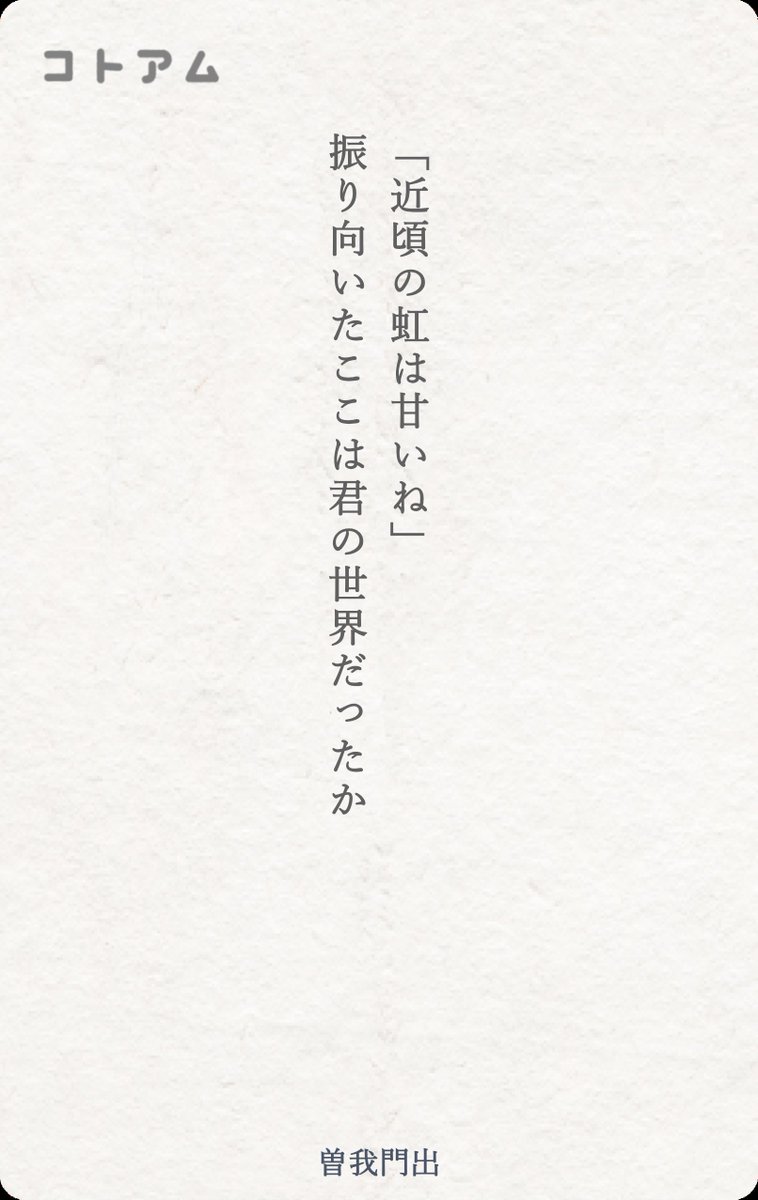 コトアム
「近頃の虹は甘いね」
振り向いたここは君の世界だったか
曽我門出